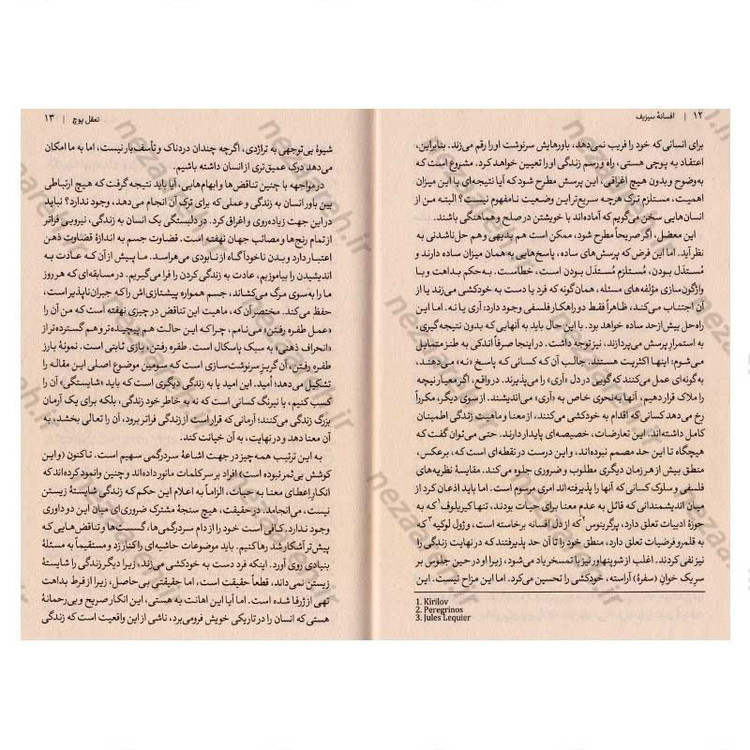 ۱۲ | افسانهٔ سیزیف
برای انسانی که خود را فریب نمی‌دهد، باورهایش سرنوشت او را رقم می‌زند. بنابراین،
اعتقاد به پوچی هستی، راه و رسم زندگی او را تعیین خواهد کرد. مشروع است که
به‌وضوح و بدون هیچ اغراقی، این پرسش مطرح شود که آیا نتیجه‌ای با این میزان
اهمیت، مستلزم ترک هرچه سریع‌تر این وضعیت نامفهوم نیست؟ البته من از
انسان‌هایی سخن می‌گویم که آماده‌اند با خویشتن در صلح و هماهنگی باشند.
این معضل، اگر صریحاً مطرح شود، ممکن است هم بدیهی و هم حل‌ناشدنی به
نظر آید. اما این فرض که پرسش‌های ساده، پاسخ‌هایی به همان میزان ساده دارند و
مُستدَل بودن، مُستلزم مُستدَل بودن است، خطاست. به‌حکم بداهت و با
واژگون‌سازی مؤلفه‌های مسئله، همان‌گونه که فرد یا دست به خودکشی می‌زند یا از
آن اجتناب می‌کند، ظاهراً فقط دو راهکار فلسفی وجود دارد: آری یا نه. اما این
راه‌حل بیش‌ازحد ساده خواهد بود. با این حال باید به آنهایی که بدون نتیجه‌گیری،
به استمرار پرسش می‌پردازند، نیز توجه داشت. در اینجا صرفاً اندکی به طنز متمایل
می‌شوم: اینها اکثریت هستند. جالب آن که کسانی که پاسخ «نه» می‌دهند،
به‌گونه‌ای عمل می‌کنند که گویی در دل «آری» را می‌پذیرند. در واقع، اگر معیار نیچه
را ملاک قرار دهیم، آنها به‌نحوی خاص به «آری» می‌اندیشند. از سوی دیگر، مکرراً
رخ می‌دهد کسانی که اقدام به خودکشی می‌کنند، از معنا و ماهیت زندگی اطمینان
کامل داشته‌اند. این تعارضات، خصیصه‌ای پایدار دارند. حتی می‌توان گفت که
هیچگاه تا این حد مصمم نبوده‌اند، و این درست در نقطه‌ای است که، برعکس،
منطق بیش از هر زمان دیگری مطلوب و ضروری جلوه می‌کند. مقایسهٔ نظریه‌های
فلسفی و سلوک کسانی که آنها را پذیرفته‌اند امری مرسوم است. اما باید اذعان کرد از
میان اندیشمندانی که قائل به عدم معنا برای حیات بودند، تنها کیریلوف۱ که به
حوزهٔ ادبیات تعلق دارد، پرگرینوس۲ که از دل افسانه برخاسته است، و ژول لوکیه۳ که
به قلمرو فرضیات تعلق دارد، منطق خود را تا آن حد پذیرفتند که در نهایت زندگی را
نیز نفی کردند. اغلب از شوپنهاور نیز با تمسخر یاد می‌شود، زیرا او در حین جلوس بر
سر یک خوانِ (سفرهٔ) آراسته، خودکشی را تحسین می‌کرد. اما این مزاح نیست. این
1. Kirilov
2. Peregrinos
3. Jules Lequier
تعقل پوچ | ۱۳
شیوهٔ بی‌توجهی به تراژدی، اگرچه چندان دردناک و تأسف‌بار نیست، اما به ما امکان
می‌دهد درک عمیق‌تری از انسان داشته باشیم.
در مواجهه با چنین تناقض‌ها و ابهام‌هایی، آیا باید نتیجه گرفت که هیچ ارتباطی
بین باور انسان به زندگی و عملی که برای ترک آن انجام می‌دهد، وجود ندارد؟ نباید
در این جهت زیاده‌روی و اغراق کرد. در دلبستگی یک انسان به زندگی، نیرویی فراتر
از تمام رنج‌ها و مصائب جهان نهفته است. قضاوت جسم به اندازهٔ قضاوت ذهن
اعتبار دارد و بدن ناخودآگاه از نابودی می‌هراسد. ما پیش از آن که عادت به
اندیشیدن را بیاموزیم، عادت به زندگی کردن را فرا می‌گیریم. در مسابقه‌ای که هر روز
ما را به‌سوی مرگ می‌کشاند، جسم همواره پیشتازی‌اش را که جبران‌ناپذیر است،
حفظ می‌کند. مختصر آن که، ماهیت این تناقض در چیزی نهفته است که من آن را
«عمل طفره رفتن» می‌نامم، چرا که این حالت هم پیچیده‌تر و هم گسترده‌تر از
«انحراف ذهنی» به سبک پاسکال است. طفره رفتن، بازی ثابتی است. نمونهٔ بارز
طفره رفتن، آن گریزِ سرنوشت‌سازی است که سومین موضوع اصلی این مقاله را
تشکیل می‌دهد؛ امید. این امید یا به زندگی دیگری است که باید «شایستگی» آن را
کسب کنیم، یا نیرنگ کسانی است که نه به خاطر خود زندگی، بلکه برای یک آرمان
بزرگ زندگی می‌کنند؛ آرمانی که قرار است از زندگی فراتر برود، آن را تعالی بخشد، به
آن معنا دهد و در نهایت، به آن خیانت کند.
به این ترتیب همه‌چیز در جهت اشاعهٔ سردرگمی است. تاکنون (و این
کوشش بی‌ثمر نبوده است) افراد بر سر کلمات مانور داده‌اند و چنین وانمود کرده‌اند که
انکارِ اِعطای معنا به حیات، الزاماً به اعلام این حکم که زندگی شایستهٔ زیستن
نیست، می‌انجامد. در حقیقت، هیچ سنجهٔ مشترک ضروری‌ای میان این دو داوری
وجود ندارد. کافی است خود را از دام سردرگمی‌ها، گسست‌ها و تناقض‌هایی که
پیش‌تر آشکار شد رها کنیم. باید موضوعات حاشیه‌ای را کنار زد و مستقیماً به مسئلهٔ
بنیادی روی آورد. اینکه فرد دست به خودکشی می‌زند، زیرا دیگر زندگی را شایستهٔ
زیستن نمی‌داند، قطعاً حقیقت است، اما حقیقتی بی‌حاصل، زیرا از فرط بداهت
تهی از ژرفا شده است. اما آیا این اهانت به هستی، این انکار صریح و بی‌رحمانهٔ
هستی که انسان را در تاریکی خویش فرومی‌برد، ناشی از این واقعیت است که زندگی
nezamah.ir